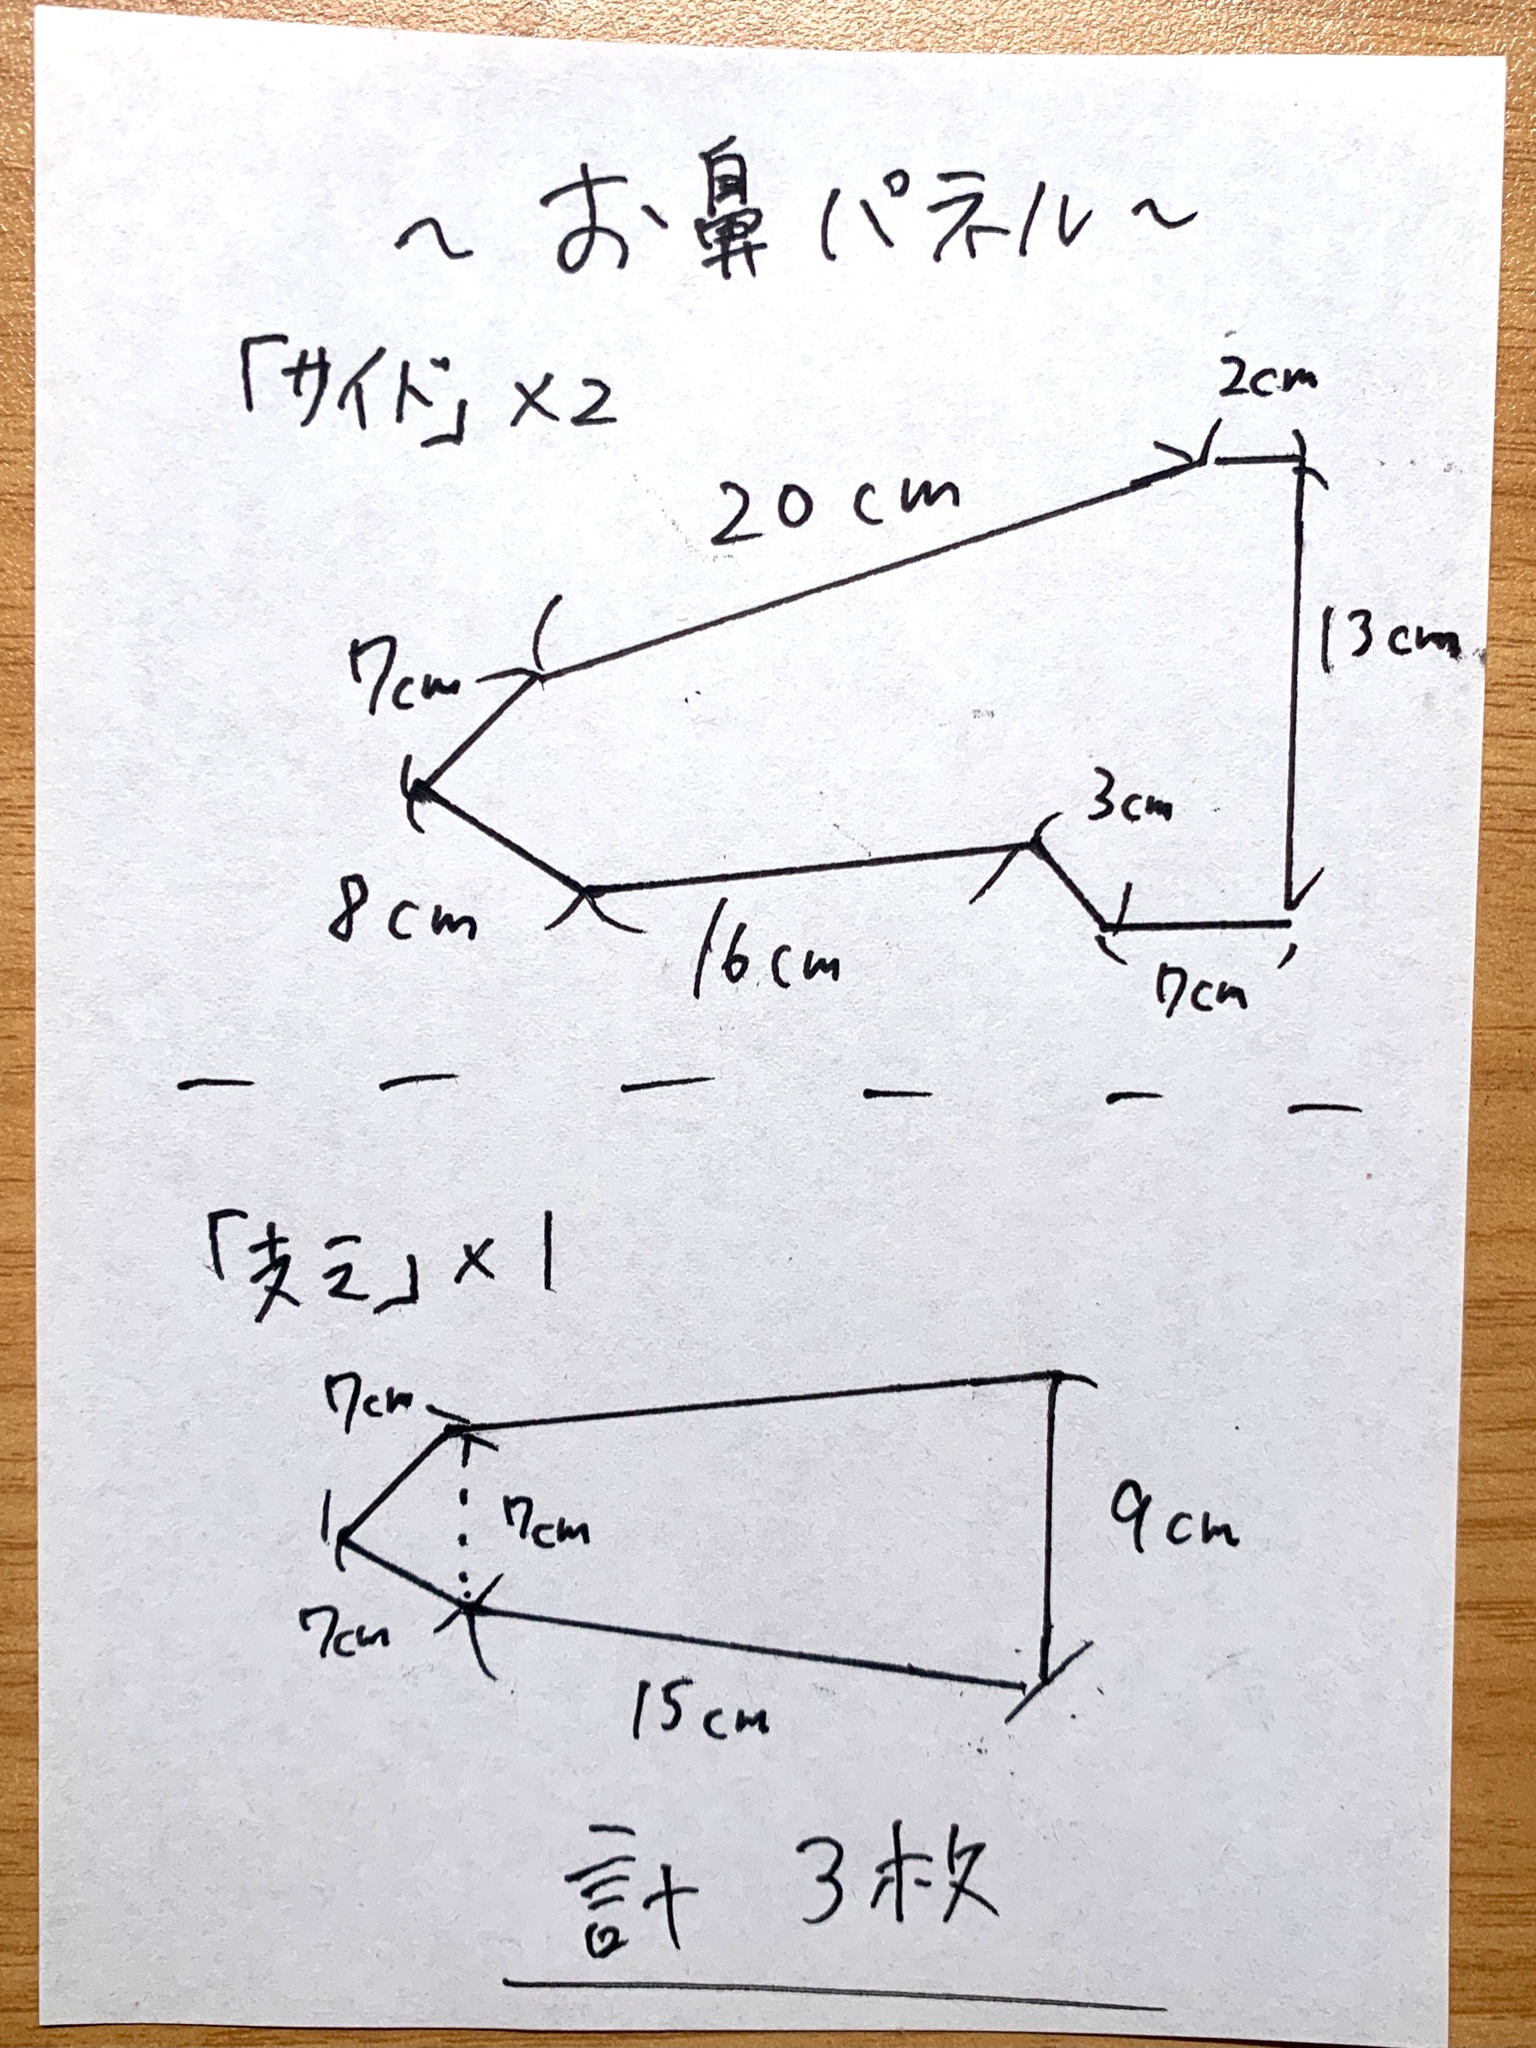 ～お鼻パネル～
「サイド」×2
2cm
20cm
13cm
7cm
3cm
8cm
16cm
7cm
「支え」×1
7cm
7cm
9cm
7cm
15cm
計 3枚